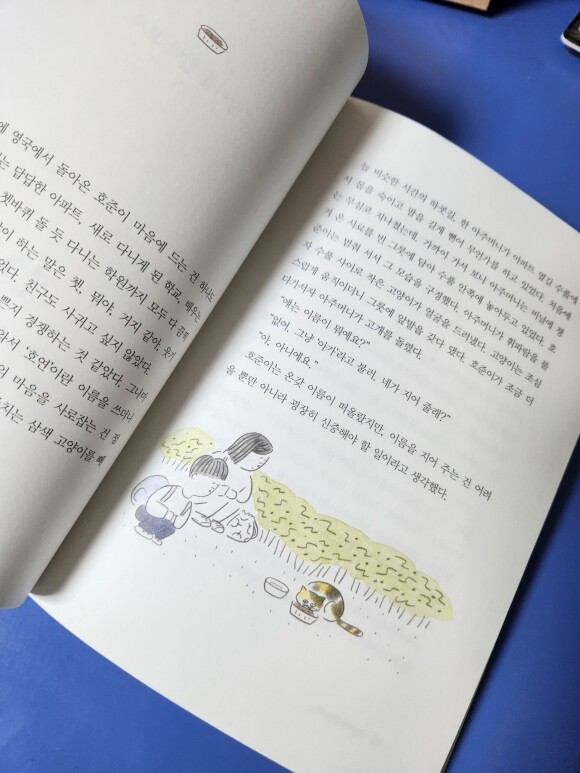 에 영국에서 돌아온 호준이 마음에 드는 건 하나도
는 답답한 아파트, 새로 다니게 된 학교, 배우는
쳇바퀴 돌 듯 다니는 학원까지 모두 다 끔찍
이 하는 말은 쳇, 뭐야, 거지 같아, 웃기
었다. 친구도 사귀고 싶지 않았다.
쁘지 경쟁하는 것 같았다. 그나마
와서 '호언'이란 이름을 쓰다니
의 마음을 사로잡는 건 정
치는 삼색 고양이를 빼
늘 비슷한 시간의 하굣길, 한 아주머니가 아파트 옆길 수풀에
서 몸을 숙이고 팔을 길게 뻗어 무언가를 하고 있었다. 처음에
는 무심코 지나쳤는데, 가까이 가서 보니 아주머니는 비닐에 챙
겨 온 사료를 빈 그릇에 담아 수풀 안쪽에 놓아두고 있었다. 호
준이는 멈춰 서서 그 모습을 구경했다. 아주머니가 휘파람을 불
자 수풀 사이로 작은 고양이가 얼굴을 드러냈다. 고양이는 조심
스럽게 움직이더니 그릇에 앞발을 갖다 댔다. 호준이가 조금 더
다가서자 아주머니가 고개를 돌렸다.
"얘는 이름이 뭐예요?"
"없어. 그냥 '아가'라고 불러. 네가 지어 줄래?"
"아, 아니에요."
호준이는 온갖 이름이 떠올랐지만, 이름을 지어 주는 건 어려
울 뿐만 아니라 굉장히 신중해야 할 일이라고 생각했다.